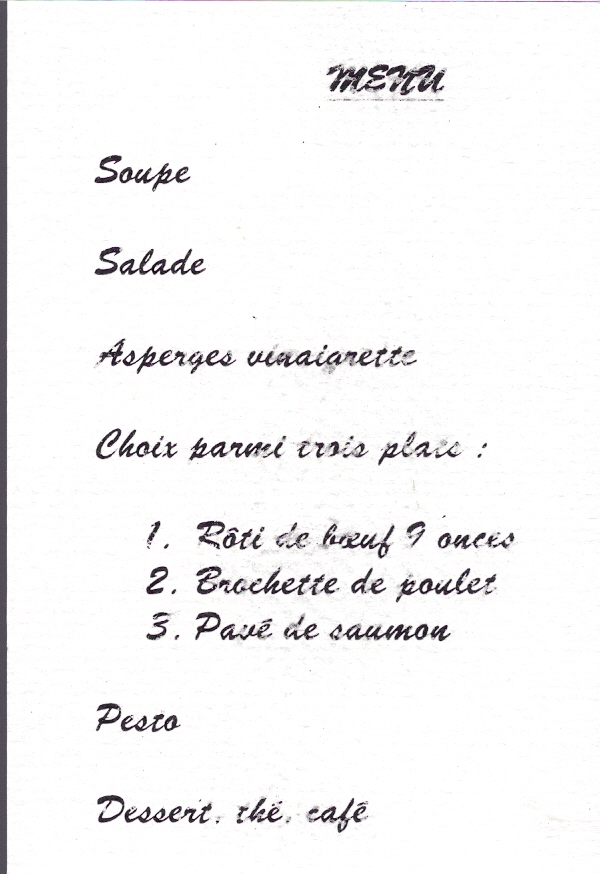 MENU
Soupe
Salade
Asperges vinaigrette
Choix parmi trois plats :
1. Rôti de bœuf 9 onces
2. Brochette de poulet
3. Pavé de saumon
Pesto
Dessert, thé, café